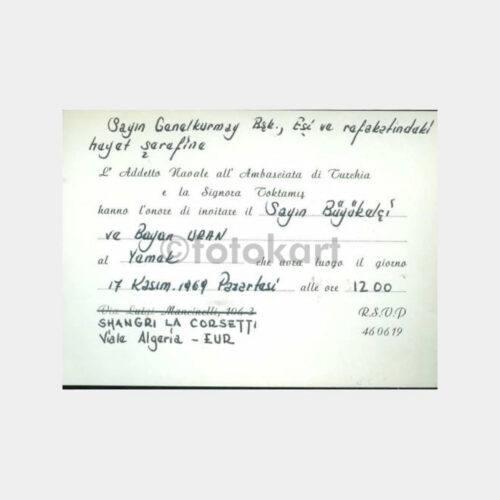 Sayın Genelkurmay Bşk., Eşi ve rafakatindeki
heyet şerefine
L' Addetto Navale all' Ambasciata di Turchia
e la Signora Toktamış
hanno l'onore di invitare il Sayın Büyükelçi
ve Bayan URAN
©fotokart
al Yemek che avrà luogo il giorno
17 Kasım.1969 Pazartesi alle ore 12 00
Via Luigi Mancinelli, 106-2 R.S.V.P
SHANGRI LA CORSETTI 460619
Viale Algeria - EUR